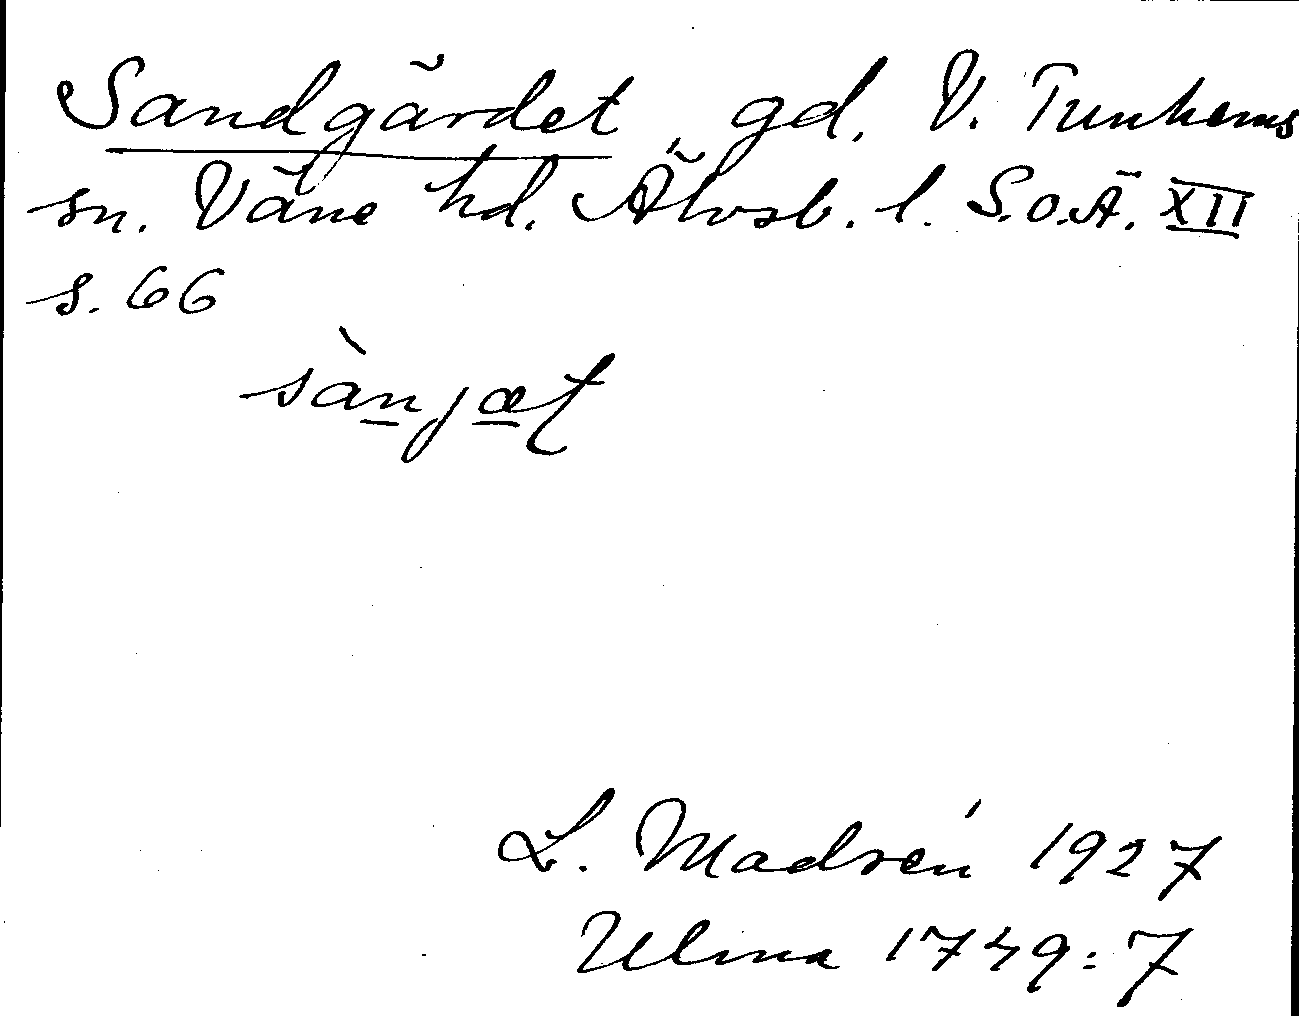 Sandgärdet, gd, V. Tunhems
sn. Väne hd. Älvsb. l. S.o.Ä. XII
s. 66
sànjæt
L. Madsén 1927
Ulma 1749:7